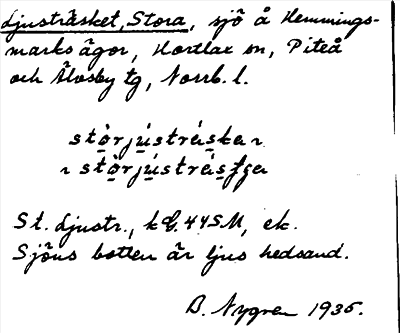 Ljusträsket, Stora, sjö å Hemmings-
marks ägor, Hortlax sn, Piteå
och Älvsby tg, Norrb. l.
stòrjústráskɐn
stòrjústrásʃgɐ
St. Ljustr., k G. 44SM, ek.
Sjöns botten är ljus hedsand.
B. Nygren 1935.